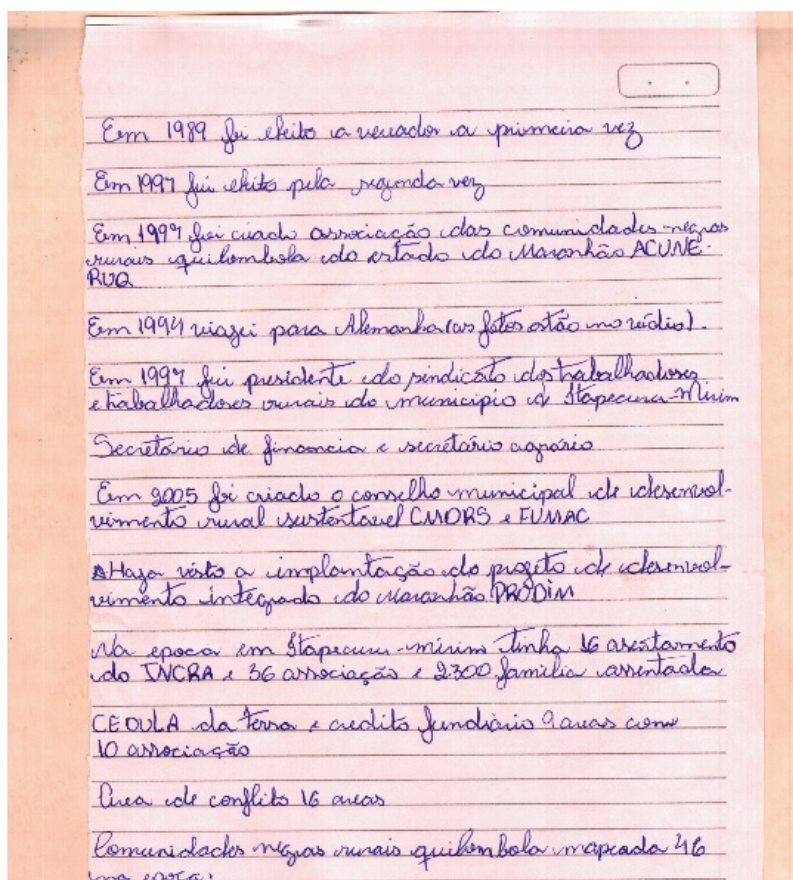 Em 1989 foi eleito a vereador a primeira vez
Em 1997 fui eleito pela segunda vez
Em 1997 foi criado associação das comunidades negras
rurais quilombola do estado do Maranhão ACUNE-
RUQ
Em 1994 viagei para Alemanha (as fotos estão no vídio).
Em 1997 fui presidente do sindicato dos trabalhadores
e trabalhadores rurais do municipio de Itapecuru-Mirim
Secretário de financia e secretário agrário
Em 2005 foi criado o conselho municipal de desenvol-
vimento rural sustentavel CMDRS e FUMAC
Haja visto a implantação do projeto de desenvol-
vimento integrado do maranhão PRODIM
Na epoca em Itapecuru-mirim tinha 16 assentamento
do INCRA e 36 associação e 2.300 familia assentada
CEDULA da terra e credito fundiário 9 areas com
10 associação
Área de conflito 16 areas
Comunidades negras rurais quilombola mapeada 46
na epoca: